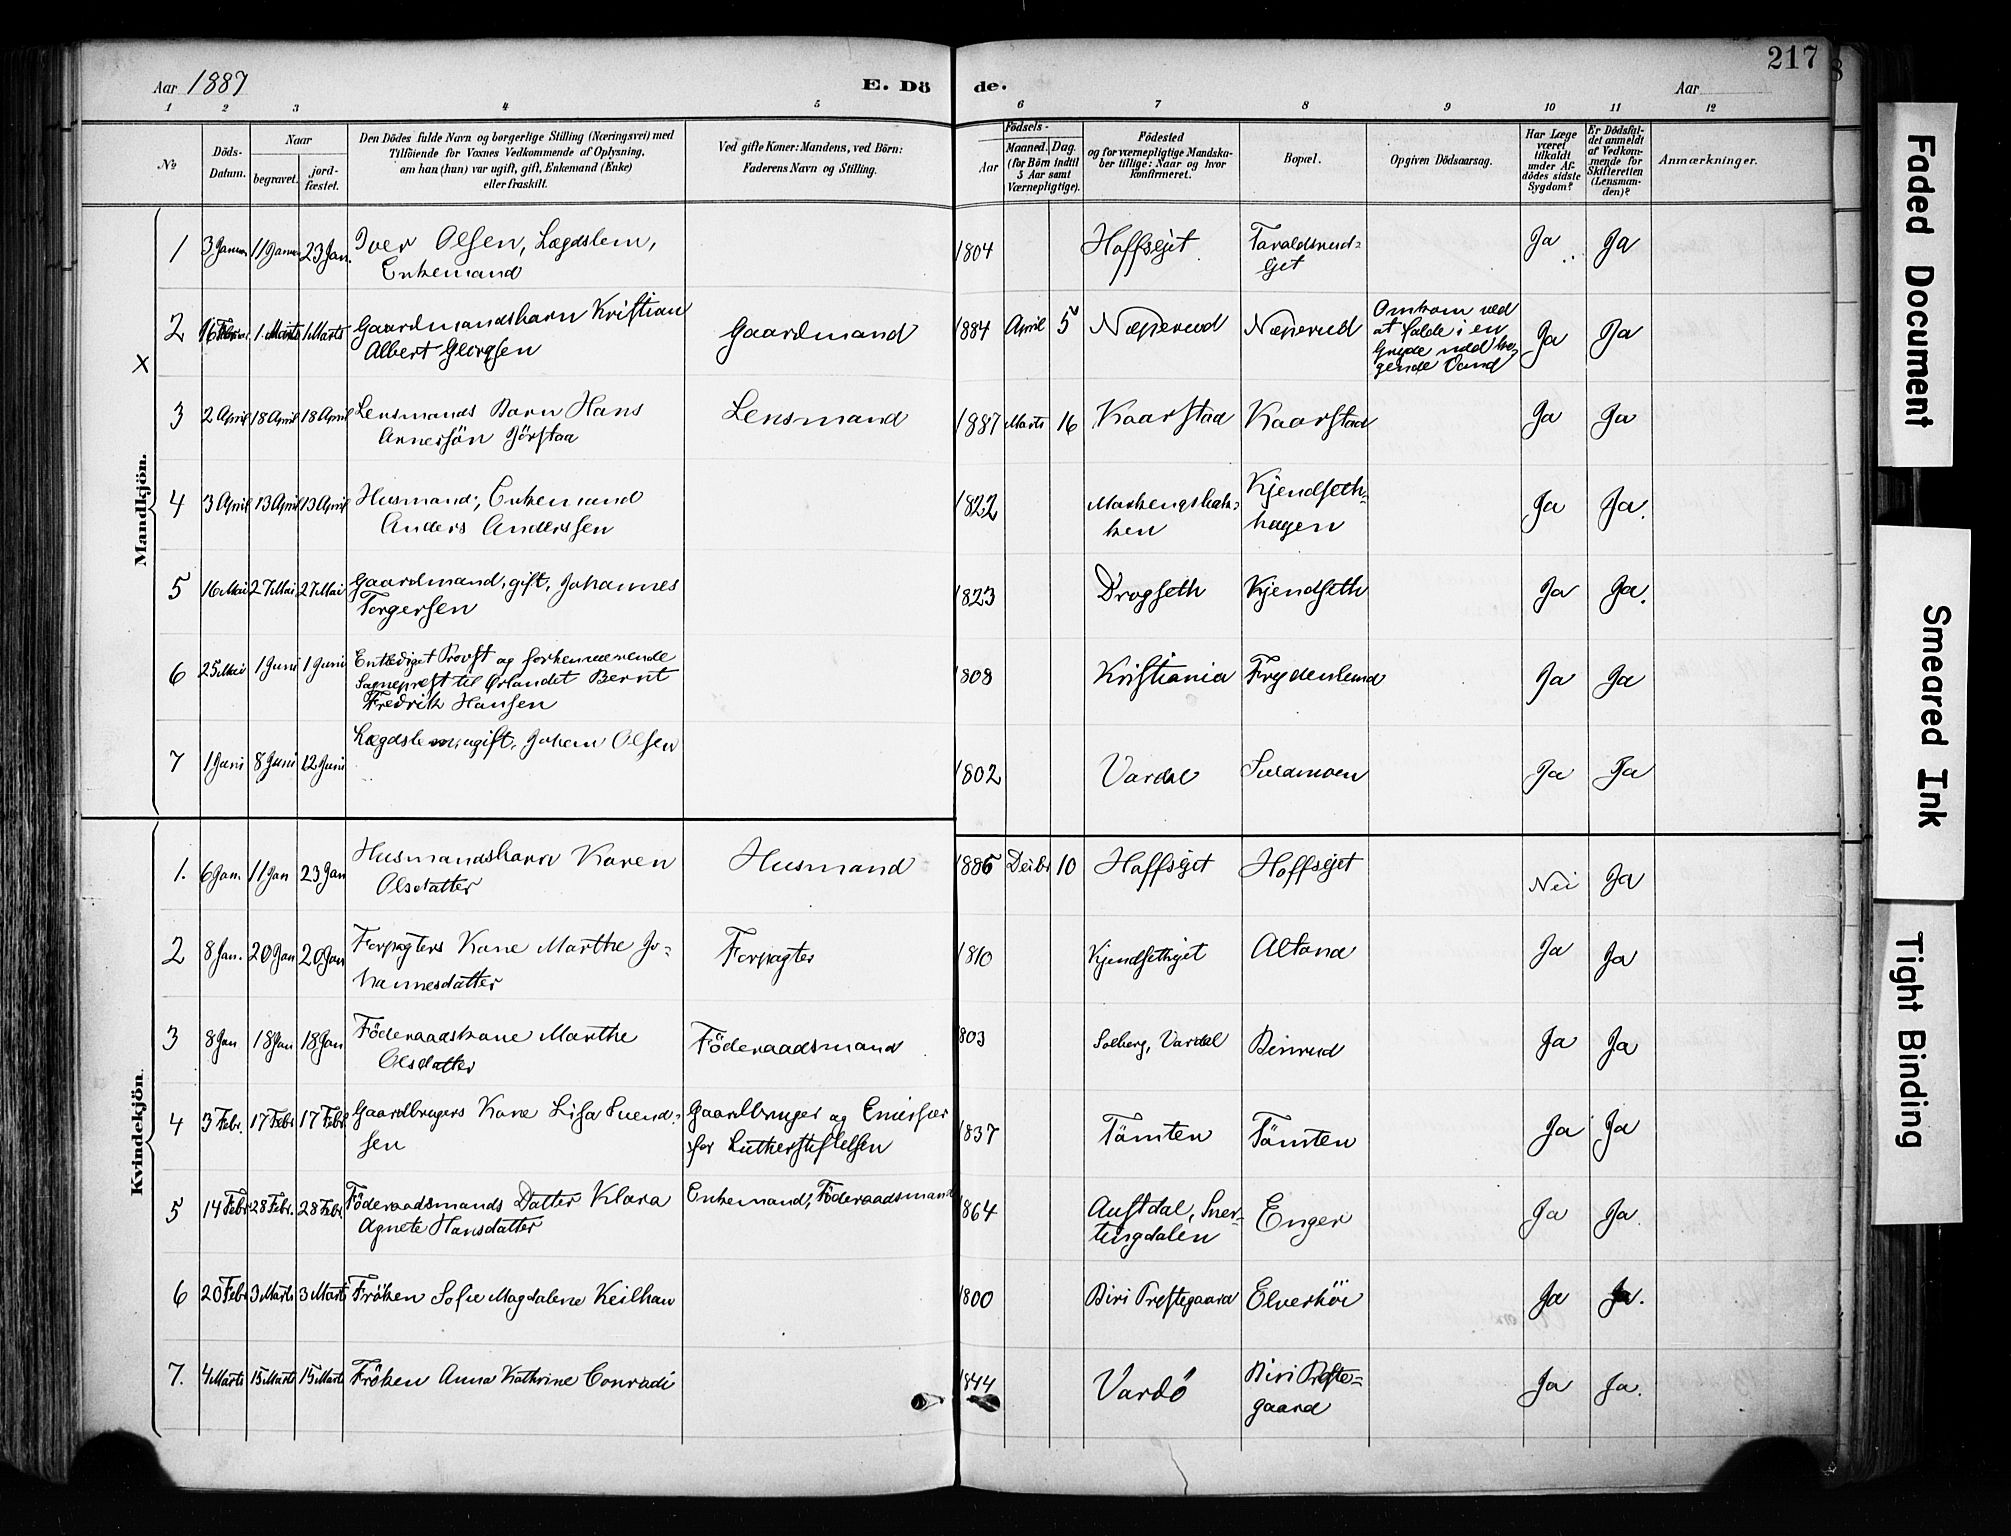 217
Aar 1887 E. Dö de. Aar
1 2 3 4 5 6 7 8 9 10 11 12
No
Döds-
Datum.
Naar
begravet.
jord-
fæstet.
Den Dödes fulde Navn og borgerlige Stilling (Næringsvei) med
Tilföiende for Voxnes Vedkommende af Oplysning,
om han (hun) var ugift, gift, Enkemand (Enke)
eller fraskilt.
Ved gifte Koner: Mandens, ved Börn:
Faderens Navn og Stilling.
Födsels-
Aar
Maaned.
Dag.
(for Börn indtil
5 Aar samt
Værnepligtige).
Födested
og for værnepligtige Mandska-
ber tillige: Naar og hvor
konfirmeret.
Bopæl.
Opgiven Dödsaarsag.
Har Læge
været
tilkaldt
under Af-
dödes sidste
Sygdom?
Er Dödsfal-
det anmeldt
af Vedkom-
mende for
Skifteretten
(Lensman-
den)?
Anmærkninger.
Mandkjön.
1 3 Januar 11 Januar 23 Jan. Iver Olsen, Lægdslem,
Enkemand
1804 Hoffsejet Taraldsrud-
ejet
Ja Ja
X
2 16 Febr 1 Marts 1 Marts Gaardmandsbarn Kristian
Albert Georgsen
Gaardmand 1884 April 5 Næperud Næperud
Omkom ved
at falde i en
Gryde med ko-
gende Vand
Ja Ja
3 2 April 18 April 18 April Lensmands Barn Hans
Arnesön Börstad
Lensmand 1887 Marts 16 Kaarstad Kaarstad Ja Ja
4 3 April 13 April 13 April Husmand, Enkemand
Anders Anderssen
1822 Markengsbak-
ken
Kjendseth-
hagen
Ja Ja.
5 16 Mai 27 Mai 27 Mai Gaardmand, gift, Johannes
Torgersen
1823 Drogseth Kjendseth Ja Ja.
6 25 Mai 1 Juni 1 Juni Entlediget Provst og forhenværende
Sogneprest til Ørlandet Bernt
Fredrik Hansen
1808 Kristiania Frydenlund Ja Ja
7 1 Juni 8 Juni 12 Juni Lægdslem, ugift, Johan Olsen
1802 Vardal Svedmoen Ja Ja
Kvindekjön.
1. 6 Jan. 11 Jan 23 Jan Husmandsbarn Karen
Olsdatter
Husmand 1886 Decbr 10 Hoffsejet Hoffsejet Nei Ja
2 8 Jan. 20 Jan 20 Jan Forpagters Kone Marthe Jo-
hannesdatter
Forpagter 1810 Kjendsethejet Alfand Ja Ja
3 8 Jan 18 Jan 18 Jan Föderaadskone Marthe
Olsdatter
Föderaadsmand 1803 Solberg, Vardal Binrud Ja Ja
4 3 Febr. 17 Febr 17 Febr. Gaardbrugers Kone Lisa Svend-
sen
Gaardbruger og Emissær
for Lutherstiftelsen
1837 Tömten Tömten Ja Ja
5 14 Febr 28 Febr. 28 Febr. Föderaadsmands Datter Klara
Agnete Hansdatter
Enkemand, Föderaadsmand 1864 Austdal, Sner-
tingdalen
Enger Ja Ja.
6 20 Febr 3 Marts 3 Marts Fröken Sofie Magdalene Keilhau
1800 Biri Prestegaard Elverhöi Ja Ja.
7. 4 Marts 15 Marts 15 Marts Fröken Anna Kathrine Conradi
1844 Vardö Biri Preste-
gaard
Ja Ja.
Faded Document
Smeared Ink
Tight Binding